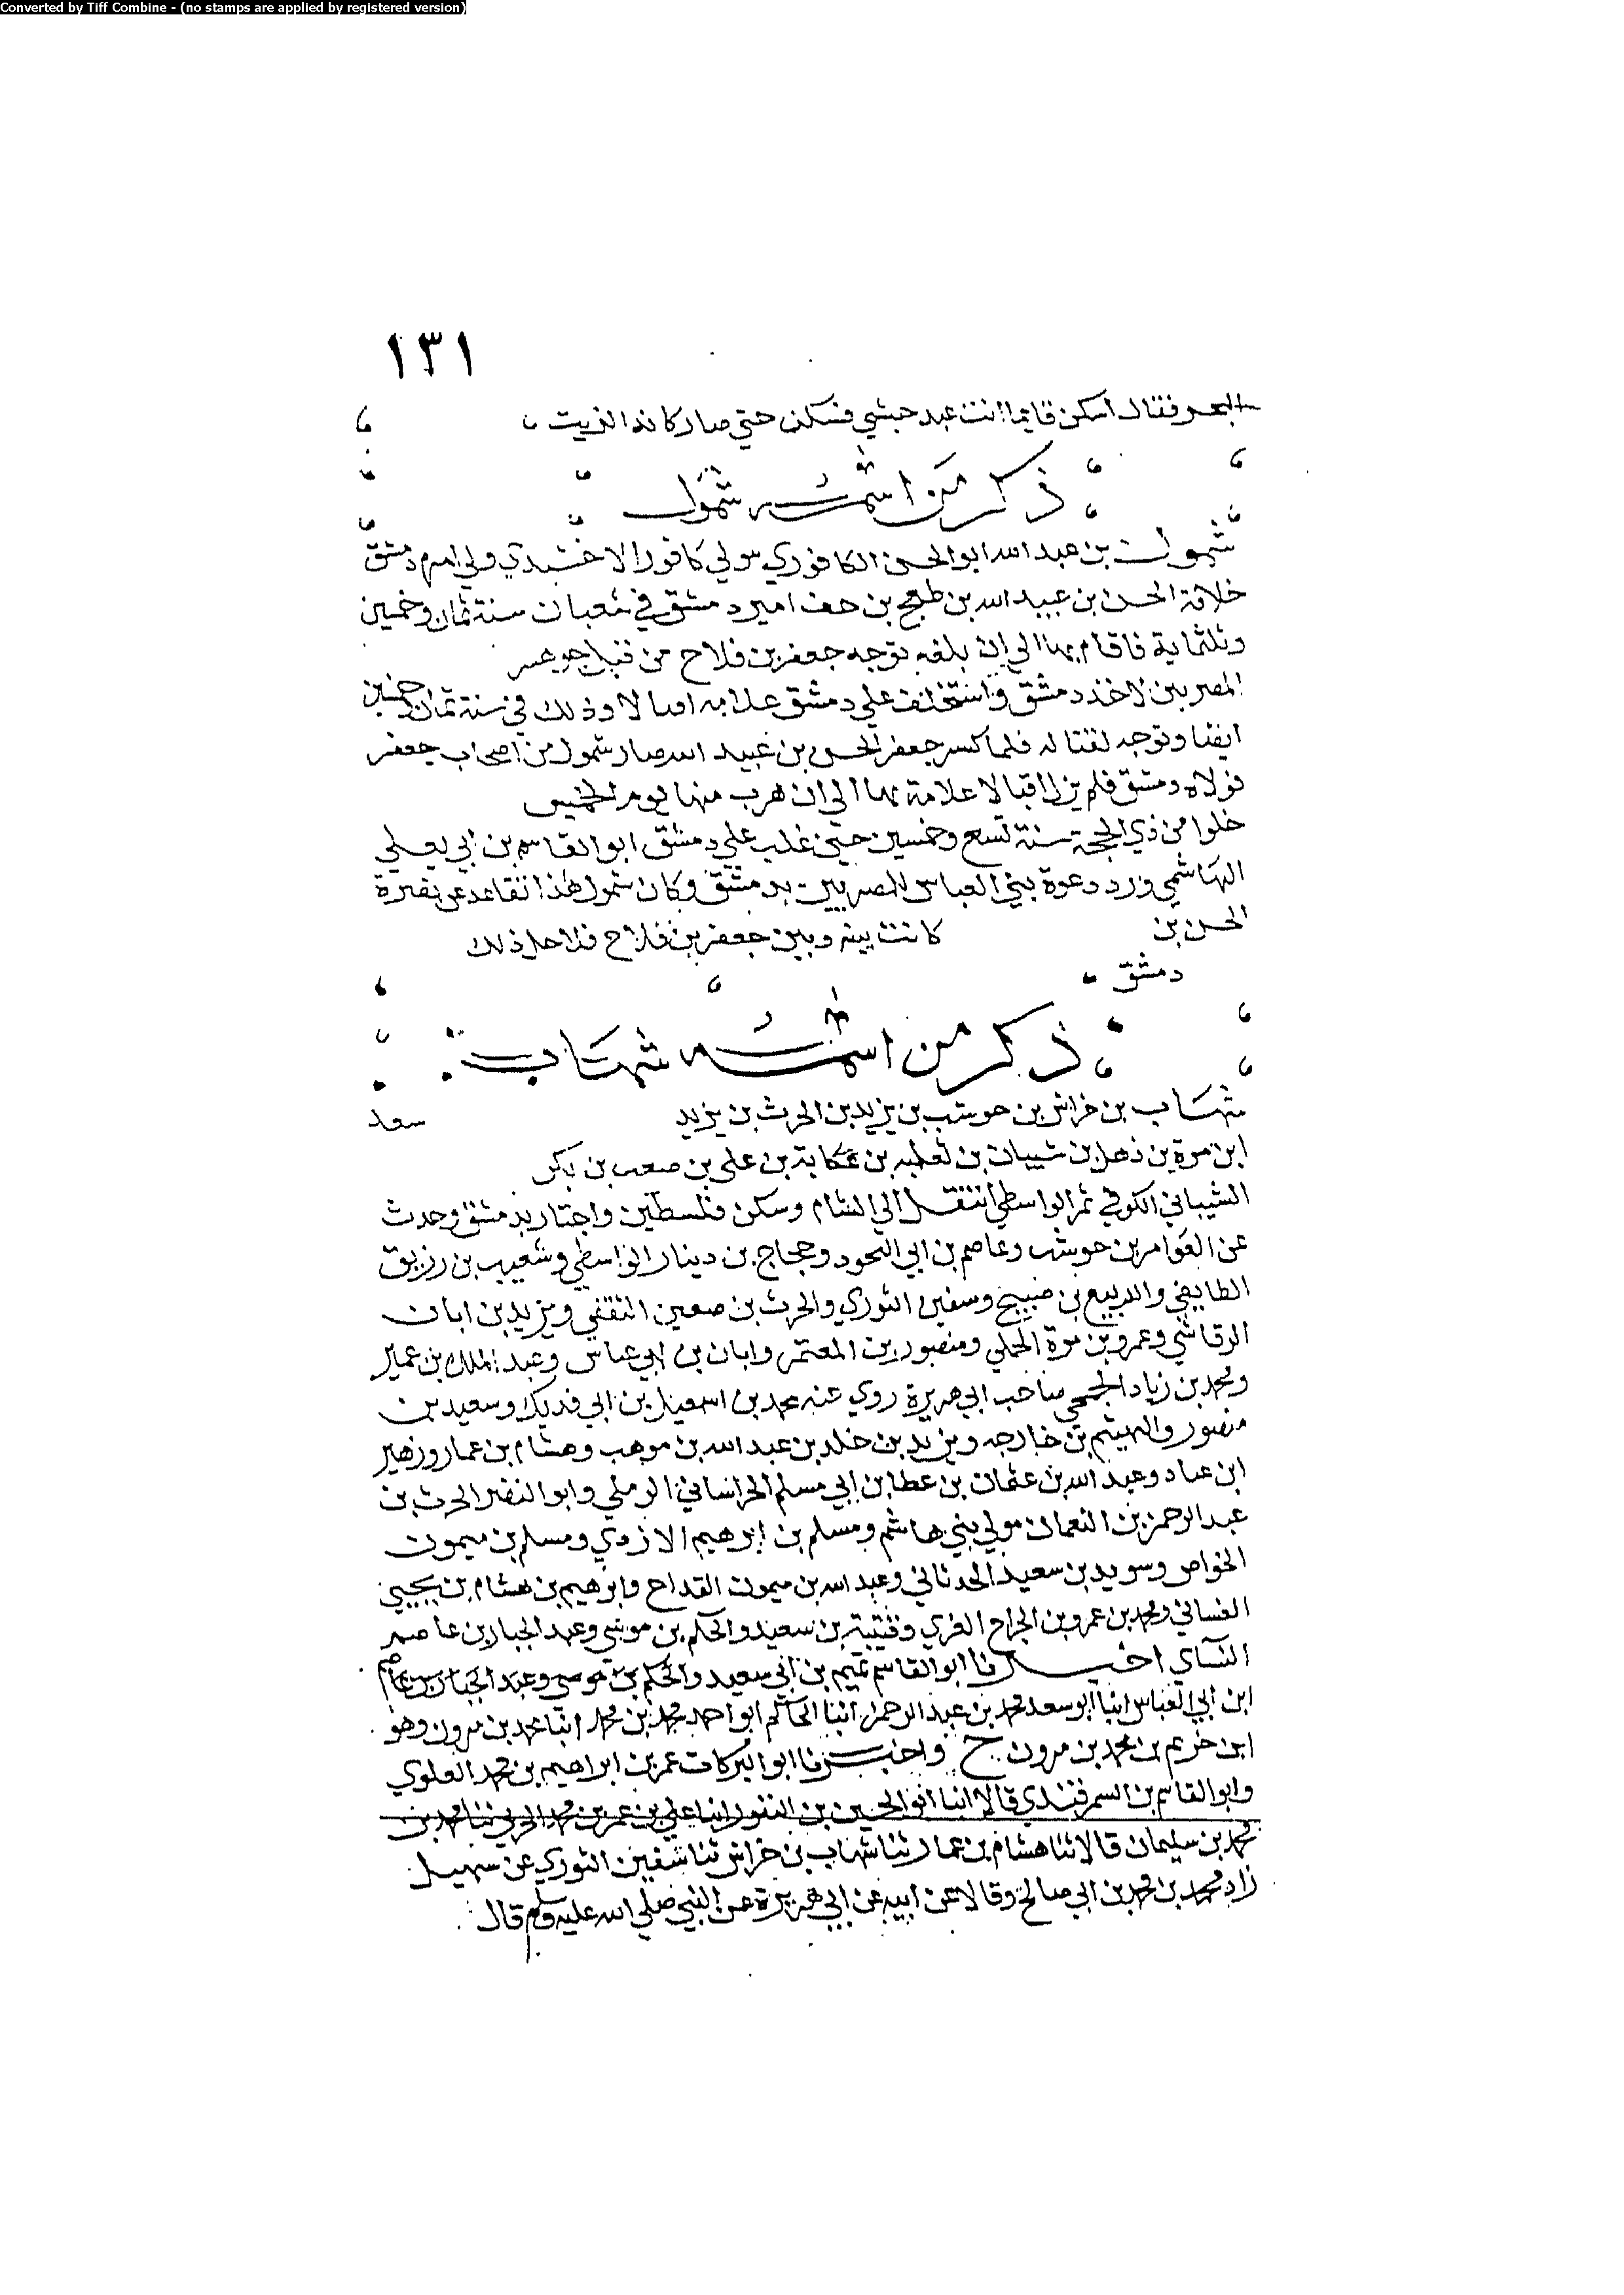 Converted by Tiff Combine - (no stamps are applied by registered version)
١٣١
البحر فقال اسكن فانما انت عبد حبشي فسكن حتي صار كانه الزيت
ذكر من اسمه شمول
شمول بن عبد الله ابو الحسن الكافوري مولي كافور الاخشيدي ولي امرة دمشق
خلافة الحسن بن عبيد الله بن طغج بن جف امير دمشق في شعبان سنة ثمان وخمسين
وثلثماية فاقام بها الي ان بلغه توجه جعفر بن فلاح من قبل جوهر
المصريين لاخذ دمشق واستخلف علي دمشق غلامه اقبالا وذلك في سنة ثمان وخمسين
ايضا وتوجه لقتاله فلما كسر جعفر الحسن بن عبيد الله صار شمول من اصحاب جعفر
فولاه دمشق فلم يزل اقبالا غلامة بها الي ان هرب منها يوم الخميس
خلوا من ذي الحجة سنة تسع وخمسين حتي غلب علي دمشق ابو القاسم بن ابي يعلي
الهاشمي ورد دعوة بني العباس للمصريين بدمشق وكان شمول هذا تقاعد عن نصرة
الحسن بن كانت بينه وبين جعفر بن فلاح فلاجل ذلك
دمشق
ذكر من اسمه شهاب
شهاب بن خراش بن حوشب بن يزيد بن الحرث بن يزيد سعد
ابن مرة بن ذهل بن شيبان بن ثعلبه بن عكابة بن علي بن صعب بن بكر
الشيباني الكوفي ثم الواسطي انتقل الي الشام وسكن فلسطين واجتاز بدمشق وحدث
عن العوام بن حوشب وعاصم بن ابي النجود وحجاج بن دينار الواسطي وشعيب بن رزيق
الطايفي والربيع بن صبيح وسفين الثوري والحرث بن صعين الثقفي ويزيد بن ابان
الرقاشي وعمرو بن مرة الجملي ومنصور بن المعتمر وابان بن ابي عياش وعبد الملك بن عمير
ومحمد بن زياد الجمحي صاحب ابي هريرة روي عنه محمد بن اسمعيل بن ابي فديك وسعيد بن
منصور والهيثم بن خارجه ويزيد بن خلد بن عبد الله بن موهب وهشام بن عمار وزهير
ابن عباد وعبد الله بن عثمان بن عطا بن ابي مسلم الخراساني الرملي وابو النضر الحرث بن
عبد الرحمن بن النعمان مولي بني هاشم ومسلم بن ابرهيم الازدي ومسلم بن ميمون
الخواص وسويد بن سعيد الحدثاني وعبد الله بن ميمون القداح وابرهيم بن هشام بن يحيي
الغساني ومحمد بن عمرو بن الجراح الغزي وقتيبة بن سعيد والحكم بن موسي وعبد الجبار بن عاصم
النساي اخبرنا ابو القاسم تميم بن ابي سعيد والحكم بن موسي وعبد الجبار بن عاصم
ابن ابي العباس انبا ابو سعد محمد بن عبد الرحمن انبا الحاكم ابو احمد محمد بن محمد انبا محمد بن مرون وهو
ابن خريم بن محمد بن مرون ح واخبرنا ابو البركات عمر بن ابراهيم بن محمد العلوي
وابو القاسم بن السمرقندي قالا انبا ابو الحسين بن النقور انبا علي بن عمر بن محمد الحربي ثنا محمد بن
محمد بن سليمان قالا ثنا هشام بن عمار ثنا شهاب بن خراش ثنا سفين الثوري عن سهيل
زاد محمد بن محمد بن ابي صالح وقالا عن ابيه عن ابي هريرة عن النبي صلي الله عليه وسلم قال